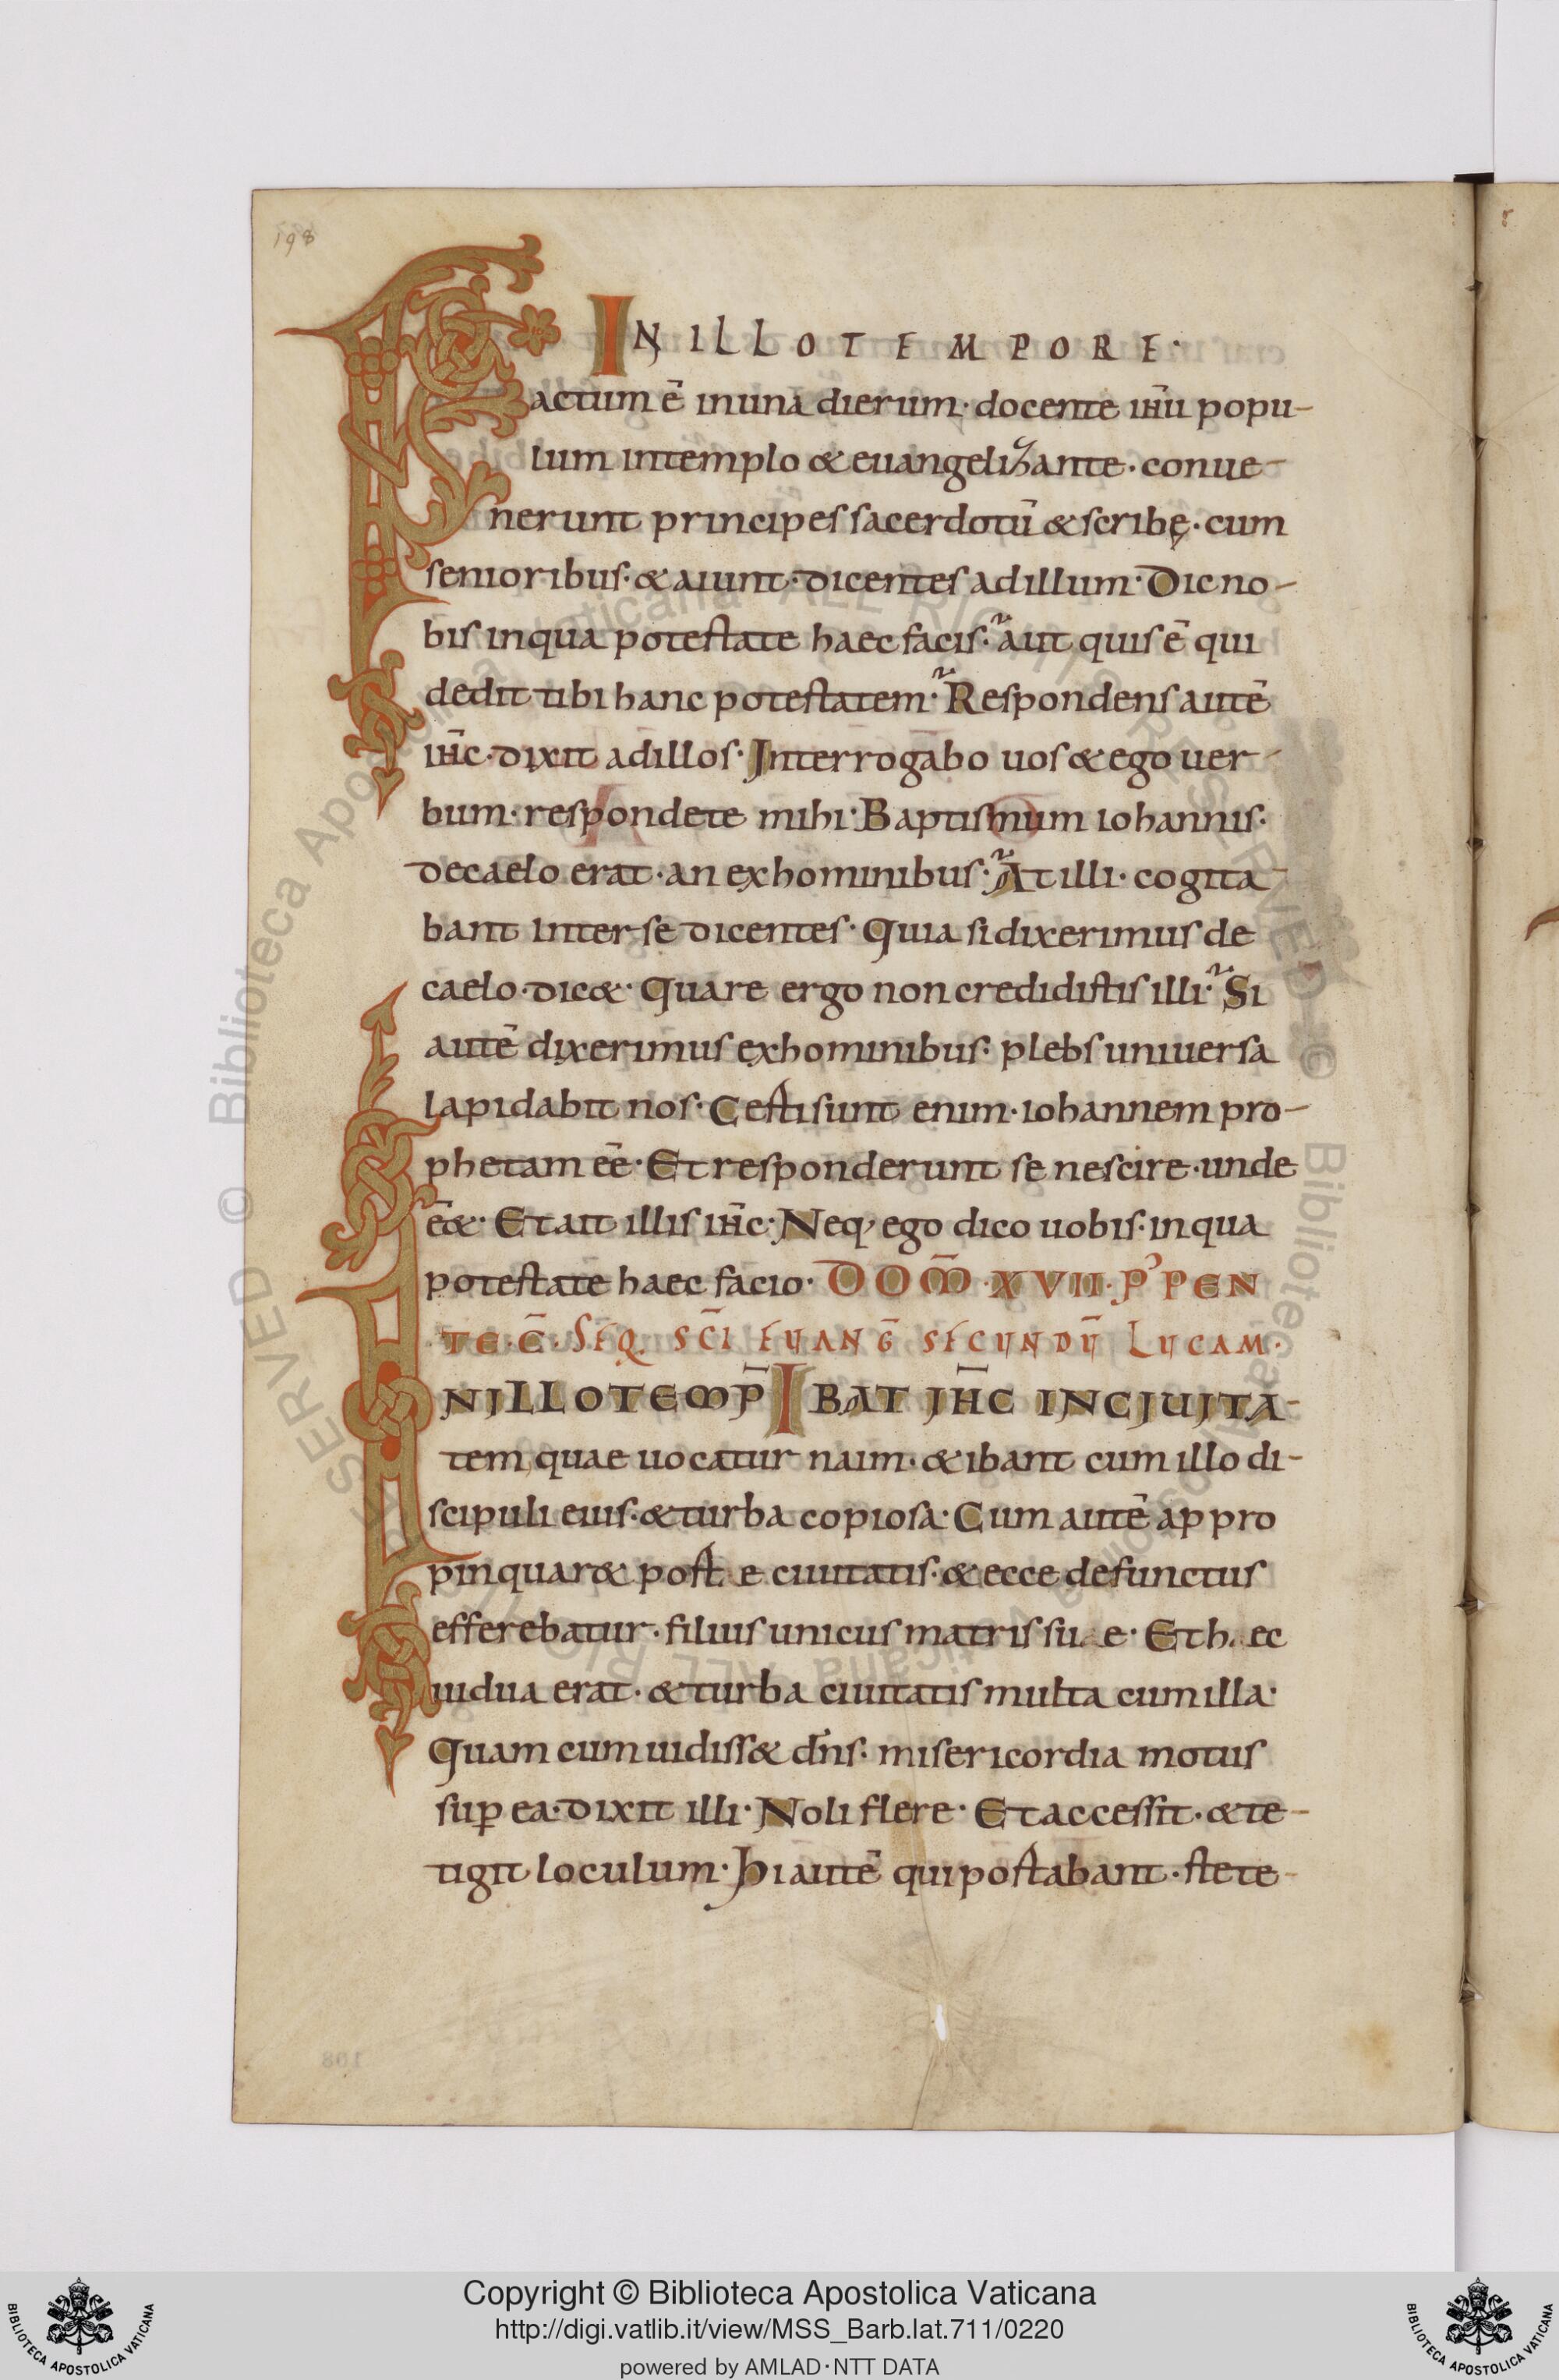 198
IN ILLO TEMPORE·
Factum ē in una dierum· docente ih̄u popu-
lum in templo & euangelizante· conue-
nerunt principes sacerdotū & scribę· cum
senioribus· & aiunt· dicentes ad illum· Dic no-
bis in qua potestate haec facis· aut quis ē qui
dedit tibi hanc potestatem· Respondens autē
ih̄c· dixit ad illos· Interrogabo uos & ego uer-
bum· respondete mihi· Baptismum iohannis·
de caelo erat· an ex hominibus· At illi· cogita-
bant inter se dicentes· Quia si dixerimus de
caelo· dic&· Quare ergo non credidistis illi· Si
autē dixerimus ex hominibus· plebs uniuersa
lapidabit nos· Certi sunt enim· iohannem pro-
phetam ēē· Et responderunt se nescire· unde
ēē&· Et ait illis ih̄c· Neq· ego dico uobis· in qua
potestate haec facio· DOM̄· XVII· P' PEN
TEC̄· SEQ· SC̄I EUANG̅ SECUNDŪ LUCAM·
IN ILLO TEMP̄ IBAT IH̄C IN CIUITA-
tem quae uocatur naim· & ibant cum illo di-
scipuli eius· & turba copiosa· Cum autē appro
pinquar& port e ciuitatis· & ecce defunctus
efferebatur· filius unicus matris su e· Et h ec
uidua erat· & turba ciuitatis multa cum illa·
Quam cum uidiss& dn̄s· misericordia motus
sup̄ ea· dixit illi· Noli flere· Et accessit· & te-
tigit loculum· Hi autē qui portabant· stete-
Copyright © Biblioteca Apostolica Vaticana
http://digi.vatlib.it/view/MSS_Barb.lat.711/0220
powered by AMLAD·NTT DATA
BIBLIOTECA APOSTOLICA VATICANA
BIBLIOTECA APOSTOLICA VATICANA